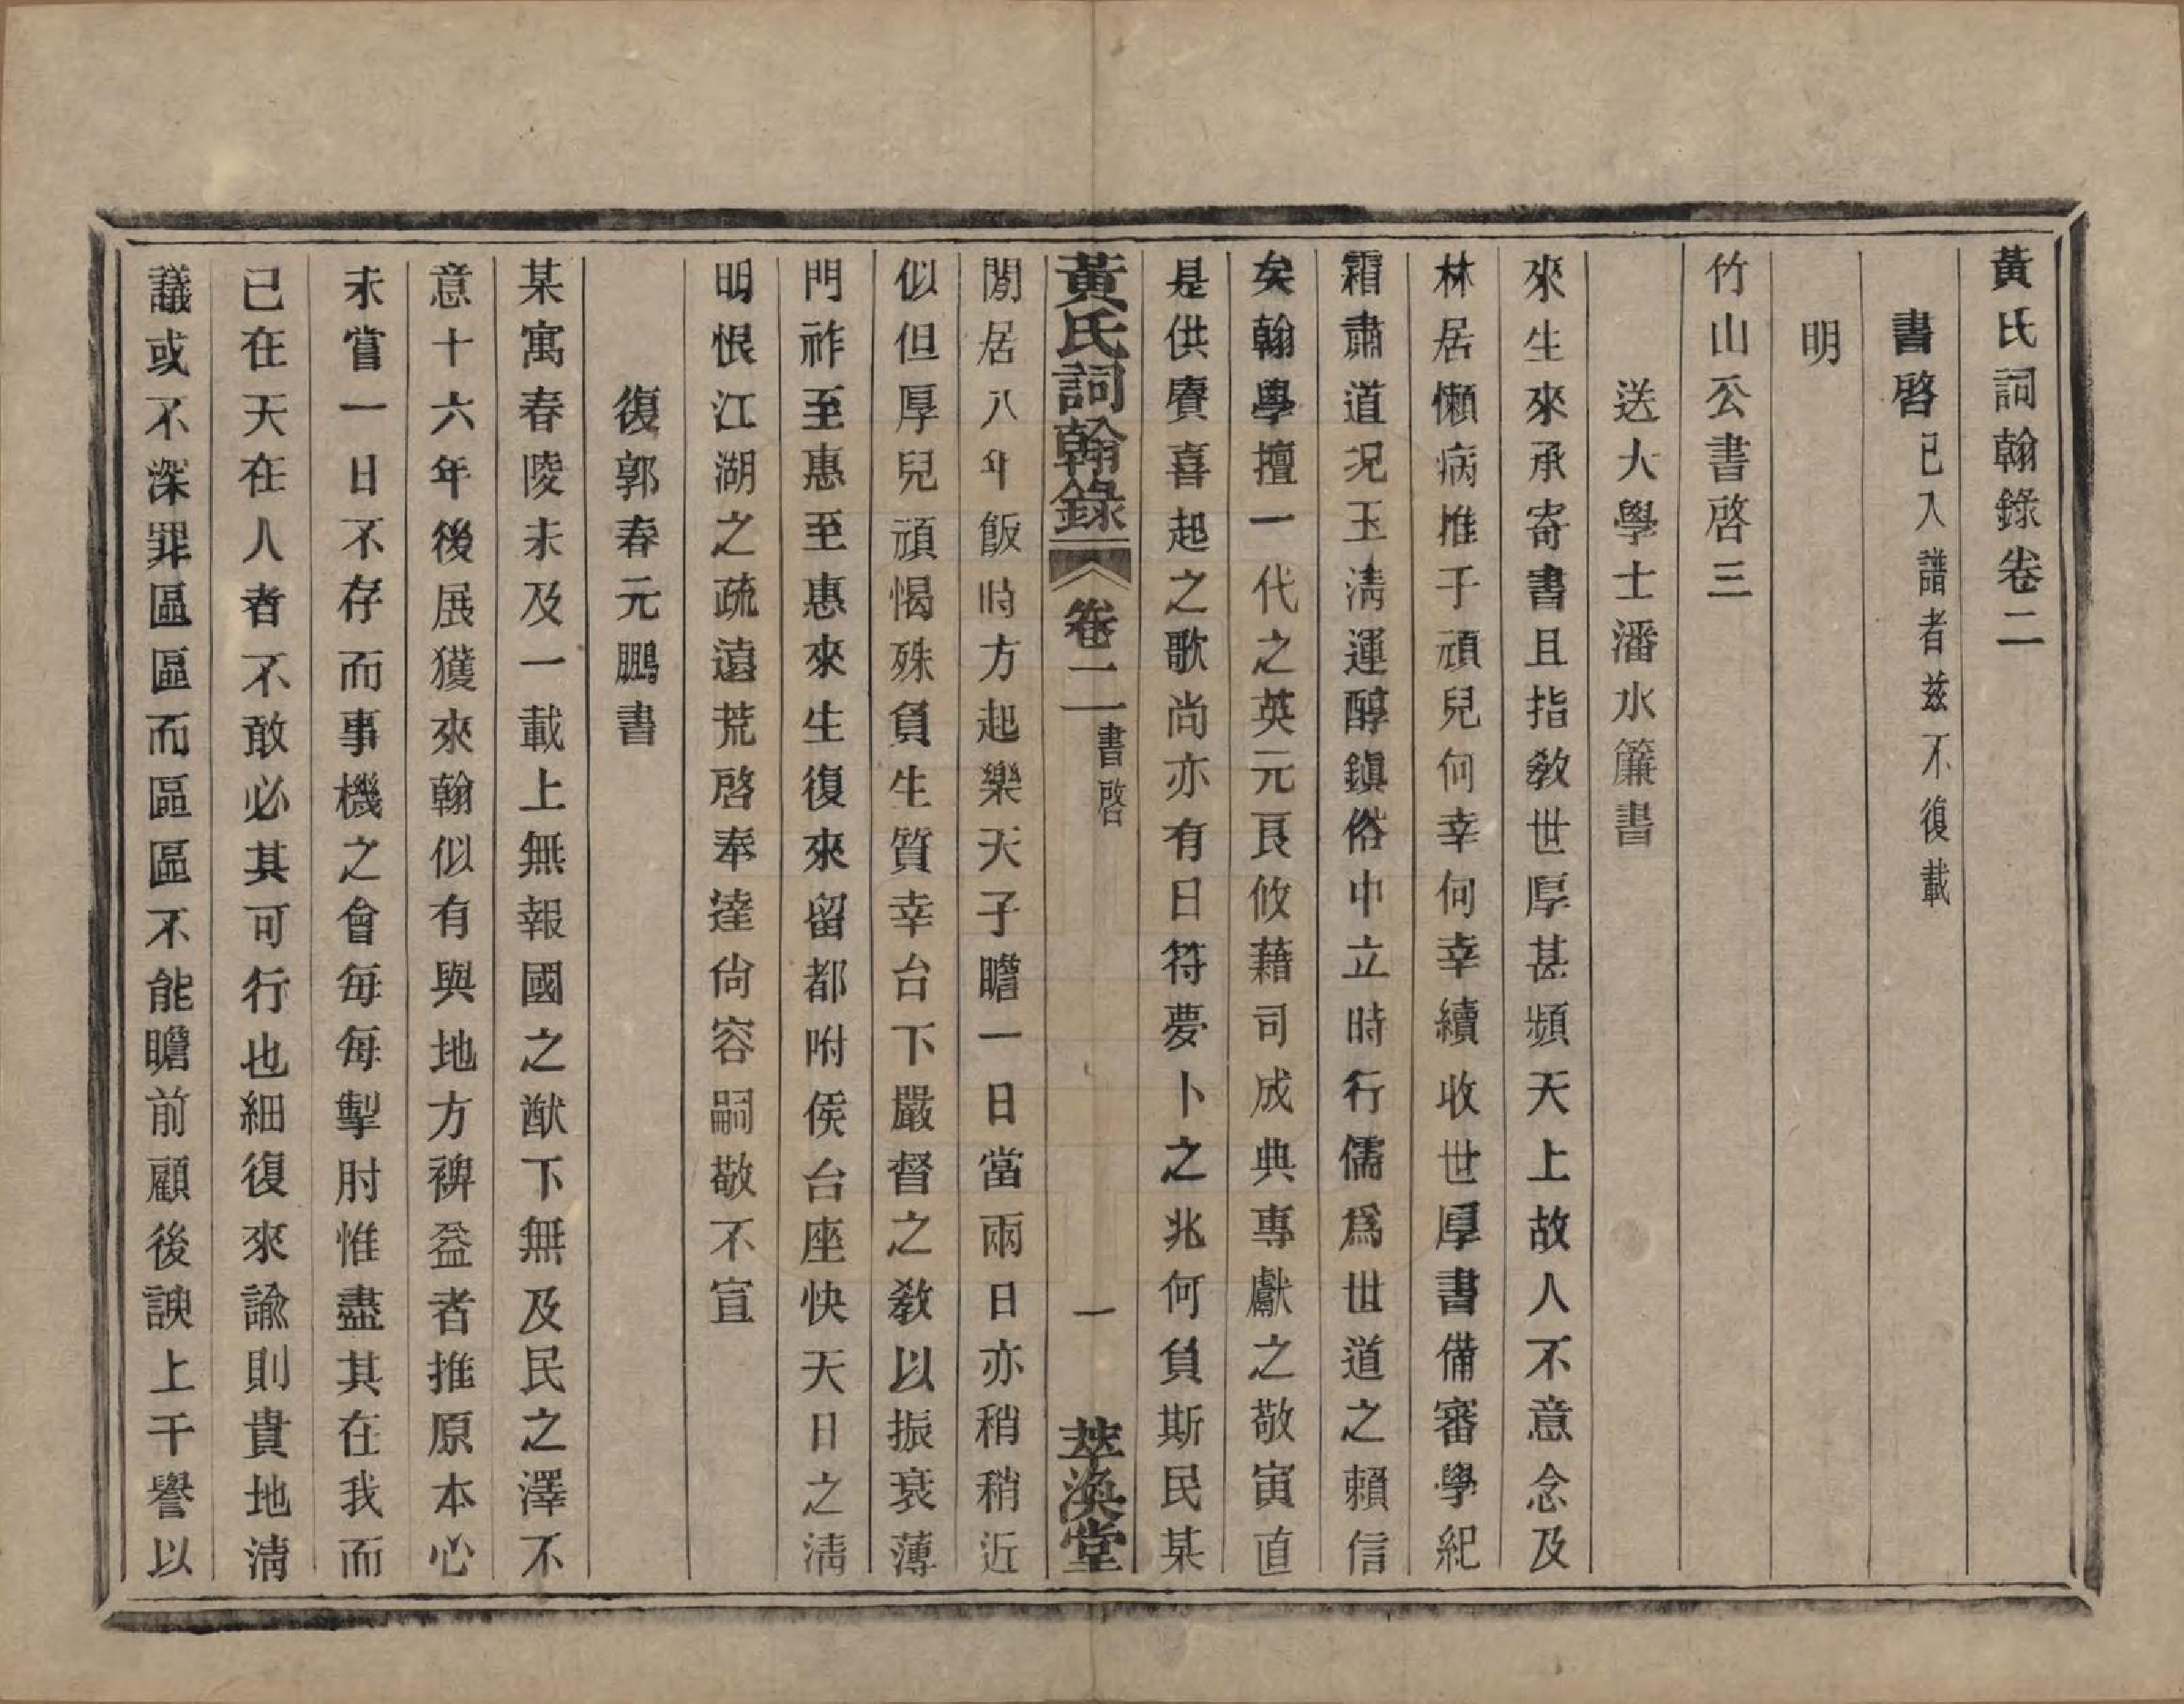 黃氏詞翰錄卷二
書啓已入譜者茲不復載
明
竹山公書啓三
送大學士潘水簾書
來生來承寄書且指敎世厚甚頻天上故人不意念及
林居懶病推子頑兒何幸何幸續收世厚書備審學紀
霜肅道況玉淸運醇鎭俗中立時行儒爲世道之賴信
矣翰學擅一代之英元良攸藉司成典專獻之敬寅直
是供賡喜起之歌尚亦有日符夢卜之兆何負斯民某
黃氏詞翰錄 卷二 書啓 一 萃渙堂
閒居八年飯時方起樂天子瞻一日當兩日亦稍稍近
似但厚兒頑愒殊負生質幸台下嚴督之敎以振衰薄
門祚至惠至惠來生復來留都附侯台座快天日之淸
明恨江湖之疏遠荒啓奉達尙容嗣敬不宣
復郭春元鵬書
某寓春陵未及一載上無報國之猷下無及民之澤不
意十六年後展獲來翰似有與地方裨益者推原本心
未嘗一日不存而事機之會每每掣肘惟盡其在我而
已在天在人者不敢必其可行也細復來諭則貴地淸
議或不深罪區區而區區不能瞻前顧後諛上干譽以